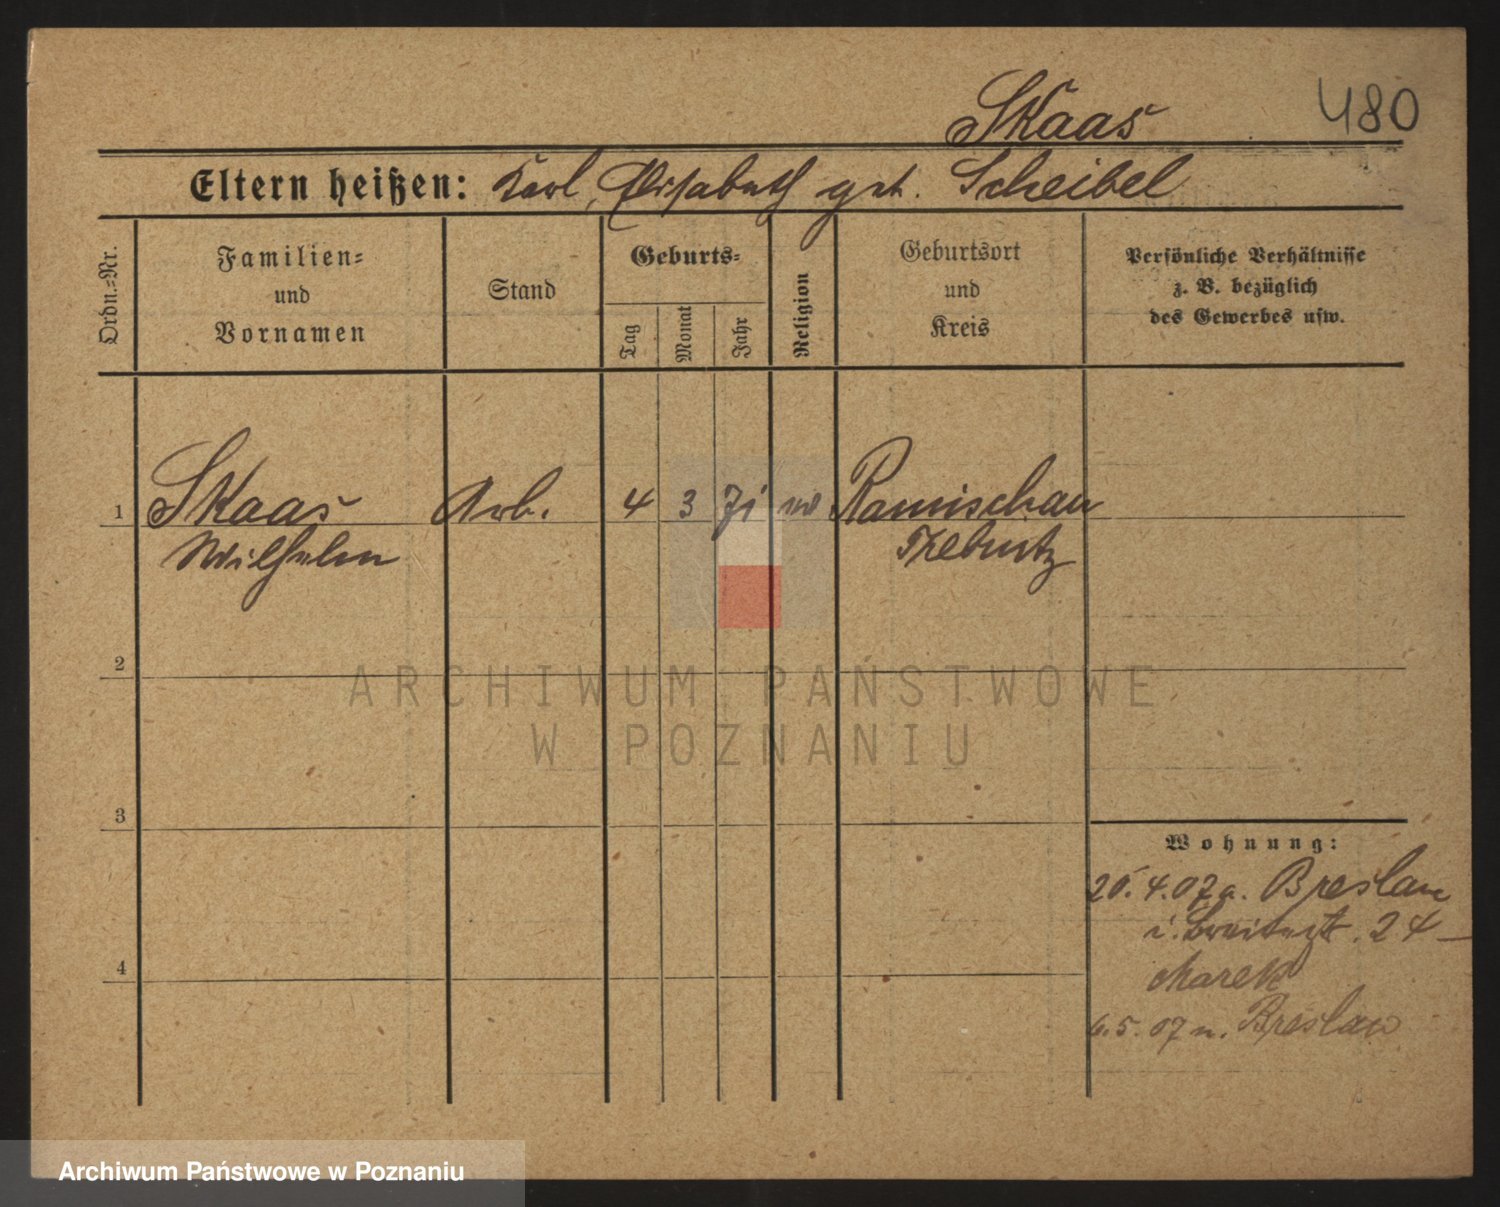 Skaas 480
Eltern heißen: Karl, Elisabeth geb. Scheibel
Ordn.-Nr.
Familien-
und
Vornamen
Stand
Geburts-
Tag
Monat
Jahr
Religion
Geburtsort
und
Kreis
Persönliche Verhältnisse
z. B. bezüglich
des Gewerbes usw.
1 Skaas Arb. 4 3 71 Ramischau
Wilhelm Trebnitz
2
3
4
Wohnung:
20.4.07 a. Breslau
i. Breitestr. 24
Marek
6.5.07 n. Breslau
ARCHIWUM PAŃSTWOWE
W POZNANIU
Archiwum Państwowe w Poznaniu